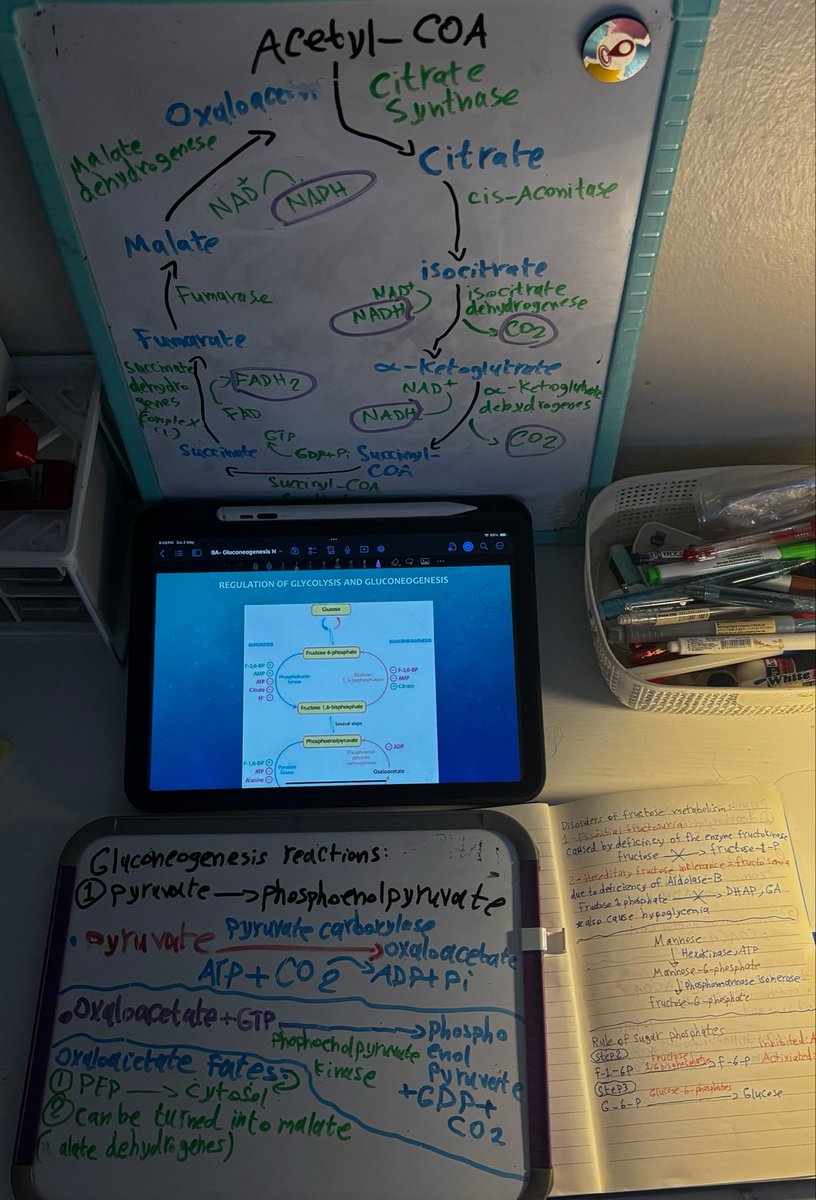 Acetyl-COA
Citrate
Synthase
Citrate
cis-Aconitase
isocitrate
isocitrate
dehydrogenese
NAD+
NADH
CO2
α-Ketoglutrate
NAD+
NADH
dehydrogenes
CO2
Succinyl-
COA
GTP
GDP+Pi
Succinyl-COA
Succinate
Succinate
dehydro
genes
FADH2
FAD
Fumarate
Fumarase
Malate
Malate
dehydrogenese
NAD+
NADH
8:59PM Sat 2 May
9A- Gluconeogenesis N
REGULATION OF GLYCOLYSIS AND GLUCONEOGENESIS
Glucose
GLYCOLYSIS
GLUCONEOGENESIS
Fructose 6-phosphate
F-2,6-BP +
AMP +
ATP −
Citrate −
H+ −
Phosphofructo-
kinase
Fructose
1,6-bisphosphatase
− F-2,6-BP
− AMP
+ Citrate
Fructose 1,6-bisphosphate
Several steps
Phosphoenolpyruvate
F-1,6-BP +
ATP −
Alanine −
Pyruvate
kinase
Phosphoenol-
pyruvate
carboxykinase
− ADP
Oxaloacetate
White
Gluconeogenesis reactions:
① pyruvate → phosphoenolpyruvate
• pyruvate pyruvate carboxylase → oxaloacetate
ATP + CO2 → ADP+Pi
• Oxaloacetate+GTP → Phospho
enol
pyruvate
+GDP+
CO2
kinase
Oxaloacetate Fates:
① PEP → cytosol
② can be turned into malate
(alate dehydrogenes)
Disorders of fructose metabolism:-
1- Essential fructosuria
caused by deficincy of the enzyme fructokinase
fructose → fructose-1-P
2- Hereditary fructose intolerance =
due to deficiency of Aldolase-B
Fructose 1 phosphate → DHAP, GA
* also cause hypoglycemia
Mannose
↓ Hexokinase, ATP
Mannose-6-phosphate
↓ Phosphomannose isomerase
fructose-6-phosphate
Rule of sugar phosphates
Step2
F-1-6P → F-6-P
Step3
Glucose-6-phosphates
G-6-P → Glucose